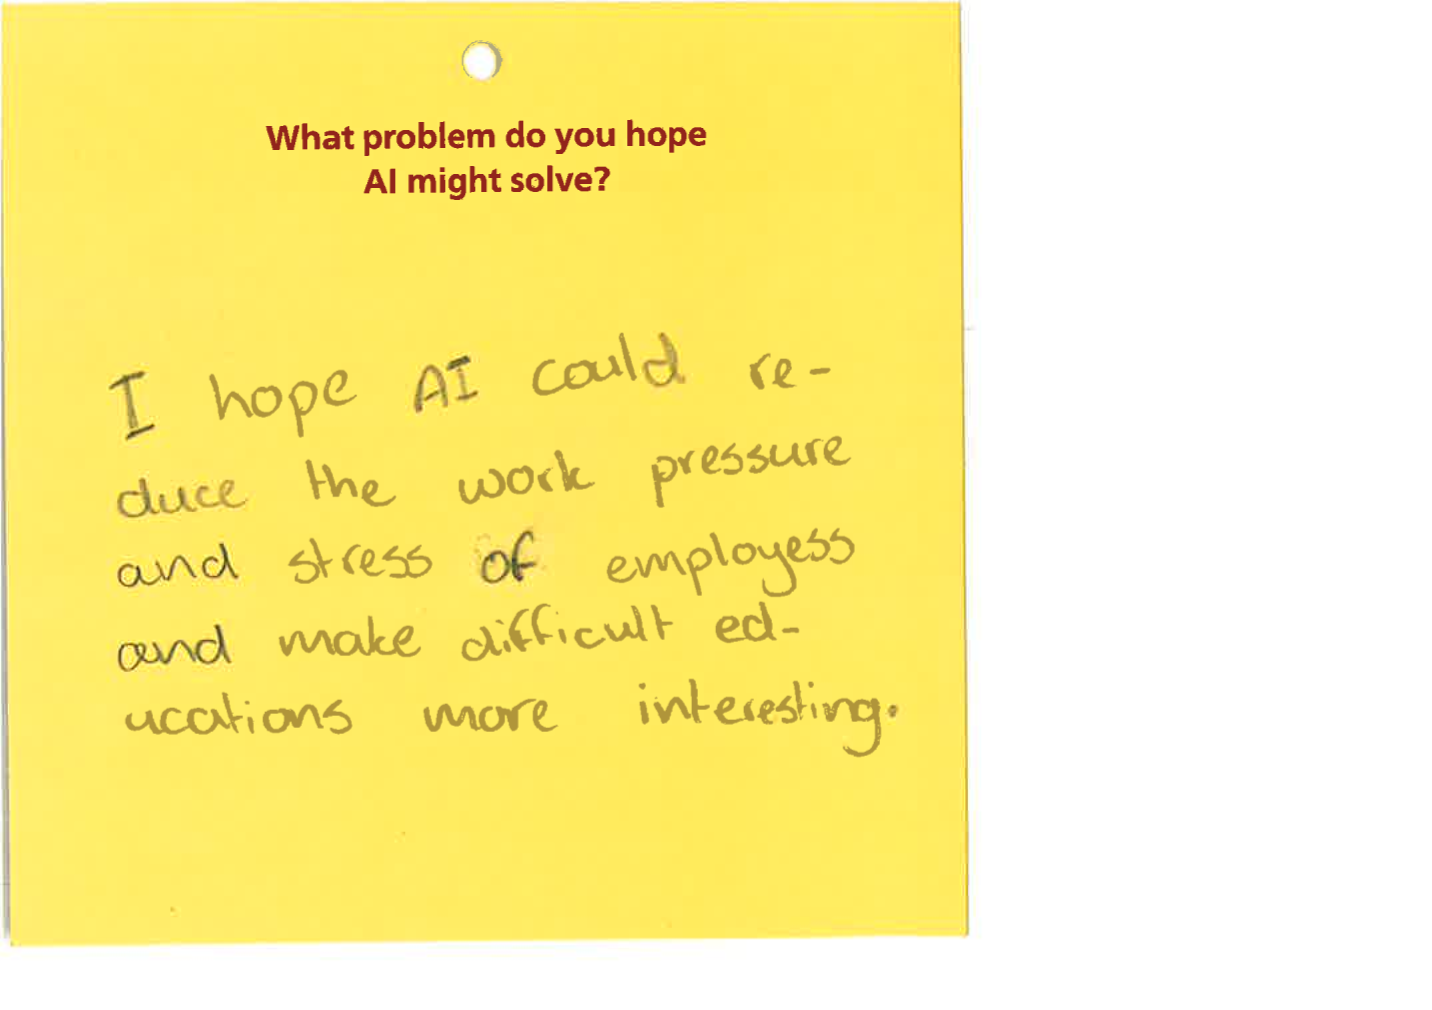 What problem do you hope
AI might solve?
I hope AI could re-
duce the work pressure
and stress of employess
and make difficult ed-
ucations more interesting.